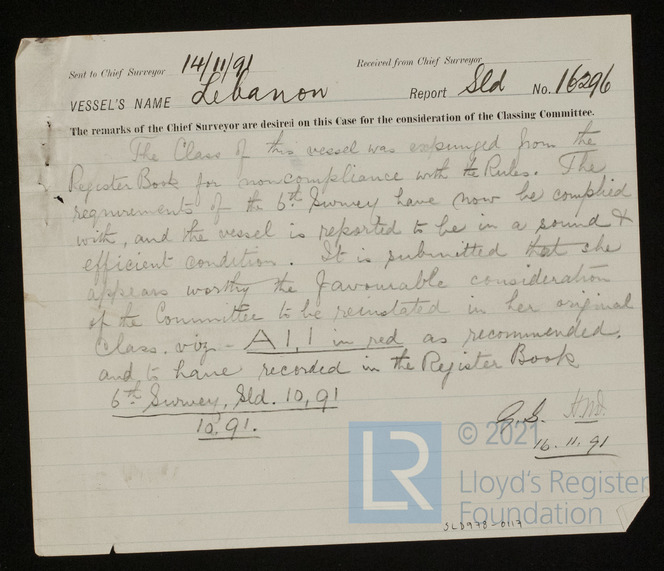 Sent to Chief Surveyor 14/11/91 Received from Chief Surveyor
VESSEL'S NAME Lebanon Report Sld No. 16296
The remarks of the Chief Surveyor are desired on this Case for the consideration of the Classing Committee.
The Class of this vessel was expunged from the
Register Book for noncompliance with the Rules. The
requirements of the 6th Survey have now be complied
with, and the vessel is reported to be in a sound &
efficient condition. It is submitted that she
appears worthy the favourable consideration
of the Committee to be reinstated in her original
Class. viz - A 1, 1 in red as recommended.
and to have recorded in the Register Book
6th Survey, Sld. 10,91
10,91.
16.11.91
LR © 2021
Lloyd's Register
Foundation
SLD978-0117